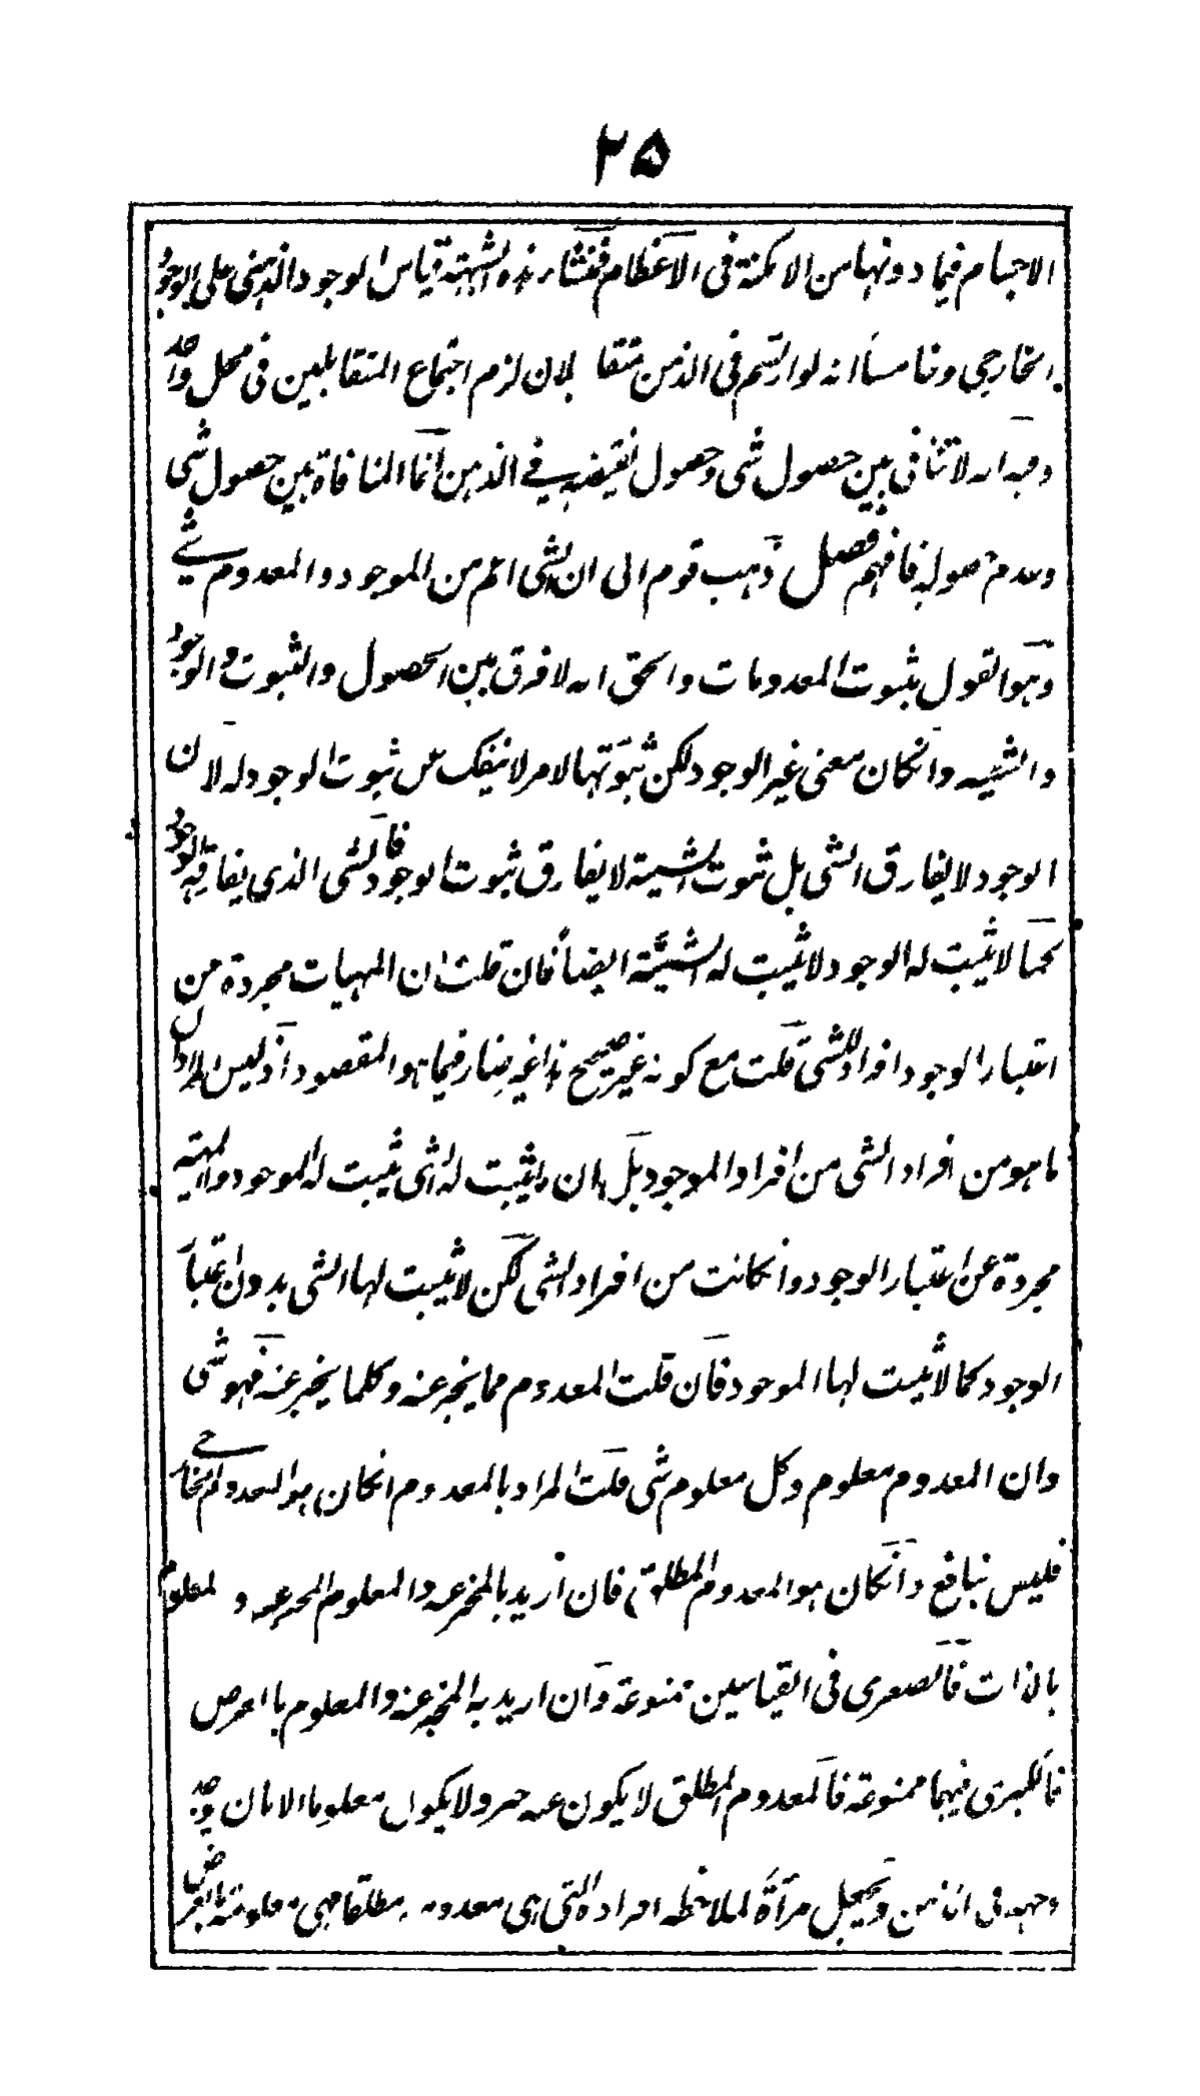 ٢٥
الاجسام فیما دونها من الامکنة فی الاعظام فمنشاء هذه الشبهة قیاس الوجود الذهنی علی الوجود
الخارجی وخامسا انه لو ارتسم فی الذهن متقابلان لزم اجتماع المتقابلین فی محل واحد
وفیه انه لا تنافی بین حصول شی وحصول نقیضه فی الذهن انما المنافاة بین حصول شی
وعدم حصوله فافهم فصل ذهب قوم الی ان الشی اعم من الموجود والمعدوم شی
وهو القول بثبوت المعدومات والحق انه لا فرق بین الحصول والثبوت والوجود
والشیئیه وانکان معنی غیر الوجود لکن ثبوتها لامر لا ینفک عن ثبوت الوجود له لان
الوجود لا یفارق الشی بل ثبوت الشیئیة لا یفارق ثبوت الوجود فالشی الذی یفارقه الوجود
کما لا یثبت له الوجود لا یثبت له الشیئیة ایضاً فان قلت ان المهیات مجردة من
اعتبار الوجود افراد للشی قلت مع کونه غیر صحیح هذا غیر ضار فیما هو المقصود اذ لیس المراد ان
ما هو من افراد الشی من افراد الموجود بل ان ما یثبت له الشی یثبت له الموجود والمهیة
مجردة عن اعتبار الوجود وانکانت من افراد الشی لکن لا یثبت لها الشی بدون اعتبار
الوجود کما لا یثبت لها الموجود فان قلت المعدوم مما یخبر عنه وکلما یخبر عنه فهو شی
وان المعدوم معلوم وکل معلوم شی قلت المراد بالمعدوم انکان هو المعدوم الخارجی
فلیس بنافع وانکان هو المعدوم المطلق فان ارید بالمخبر عنه والمعلوم المخبر عنه والمعلوم
بالذات فالصغری فی القیاسین ممنوعة وان ارید به المخبر عنه والمعلوم بالعرض
فالکبری فیهما ممنوعة فالمعدوم المطلق لا یکون عنه خبر ولا یکون معلوما الا بان یوجد
وجهه فی الذهن ویجعل مرآة لملاحظه افراده التی هی معدومه مطلقا فهی معلومة بالعرض